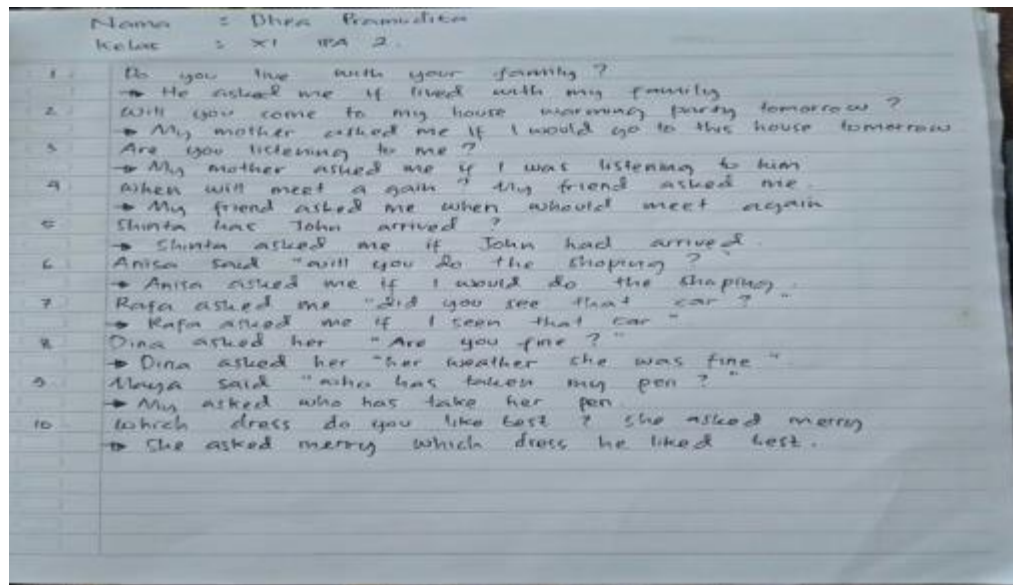 Nama : Dhea Pramudita
Kelas : XI IPA 2.
1 Do you live with your family ?
→ He asked me if lived with my family
2 Will you come to my house warming party tomorrow ?
→ My mother asked me if I would go to this house tomorrow
3 Are you listening to me ?
→ My mother asked me if I was listening to him
4 When will meet a gain ? My friend asked me.
→ My friend asked me when whould meet again
5 Shinta has John arrived ?
→ Shinta asked me if John had arrived.
6 Anisa said "will you do the shoping ?"
→ Anisa asked me if I would do the shaping.
7 Rafa asked me "did you see that car ? "
→ Rafa asked me if I seen that car "
8 Dina asked her " Are you fine ? "
→ Dina asked her "her weather she was fine "
9 Maya said "who has taken my pen ? "
→ My asked who has take her pen.
10 Which dress do you like best ? she asked merry
→ She asked merry which dress he liked best .